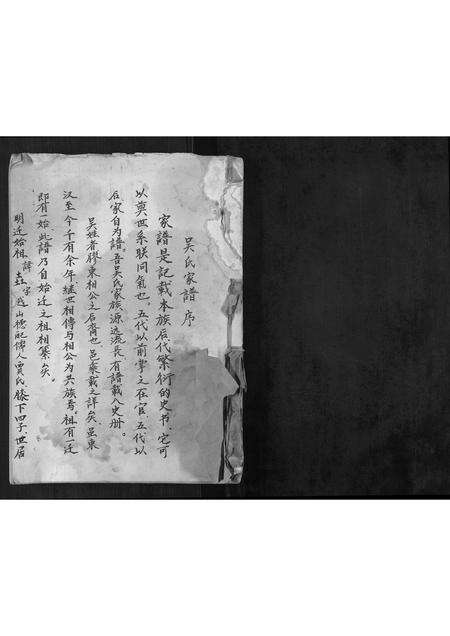 吴氏家譜序
家譜是记载本族后代繁衍的史书、它可
以奠世系联同氣也。五代以前掌之在官、五代以
后家自为譜。吾吴氏家族源远流長有譜載入史册。
吴姓者膠東相公之后裔也、邑乘載之詳矣、邑東
汉至今千有余年继世相傳与相公为共族焉、祖有一迁
即有一始此譜乃自始迁之祖相纂矣。
明迁始祖諱垚字越山德配儒人賈氏膝下四子、世居